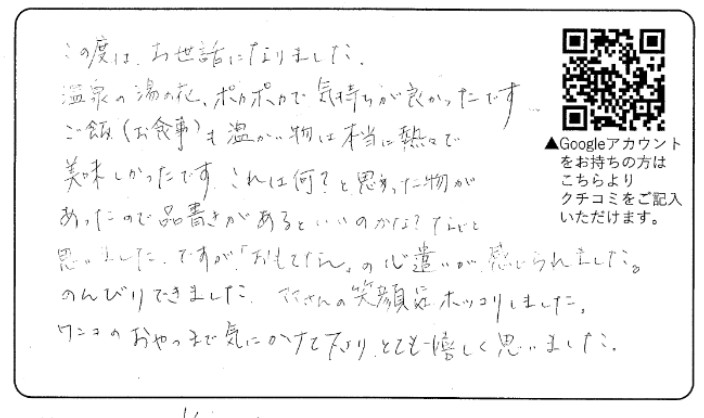 この度は、お世話になりました。
温泉の湯の花、ポカポカで気持ちが良かったです
ご飯(お食事)も温かい物は本当に熱々で
美味しかったです。これは何?と思った物が
あったので品書きがあるといいのかな?などと
思いました。ですが「おもてなし」の心遣いが感じられました。
のんびりできました。 さんの笑顔 ホッコリしました。
ワンコのおやつまで気にかけて下さり、とても嬉しく思いました。
▲Googleアカウント
をお持ちの方は
こちらより
クチコミをご記入
いただけます。